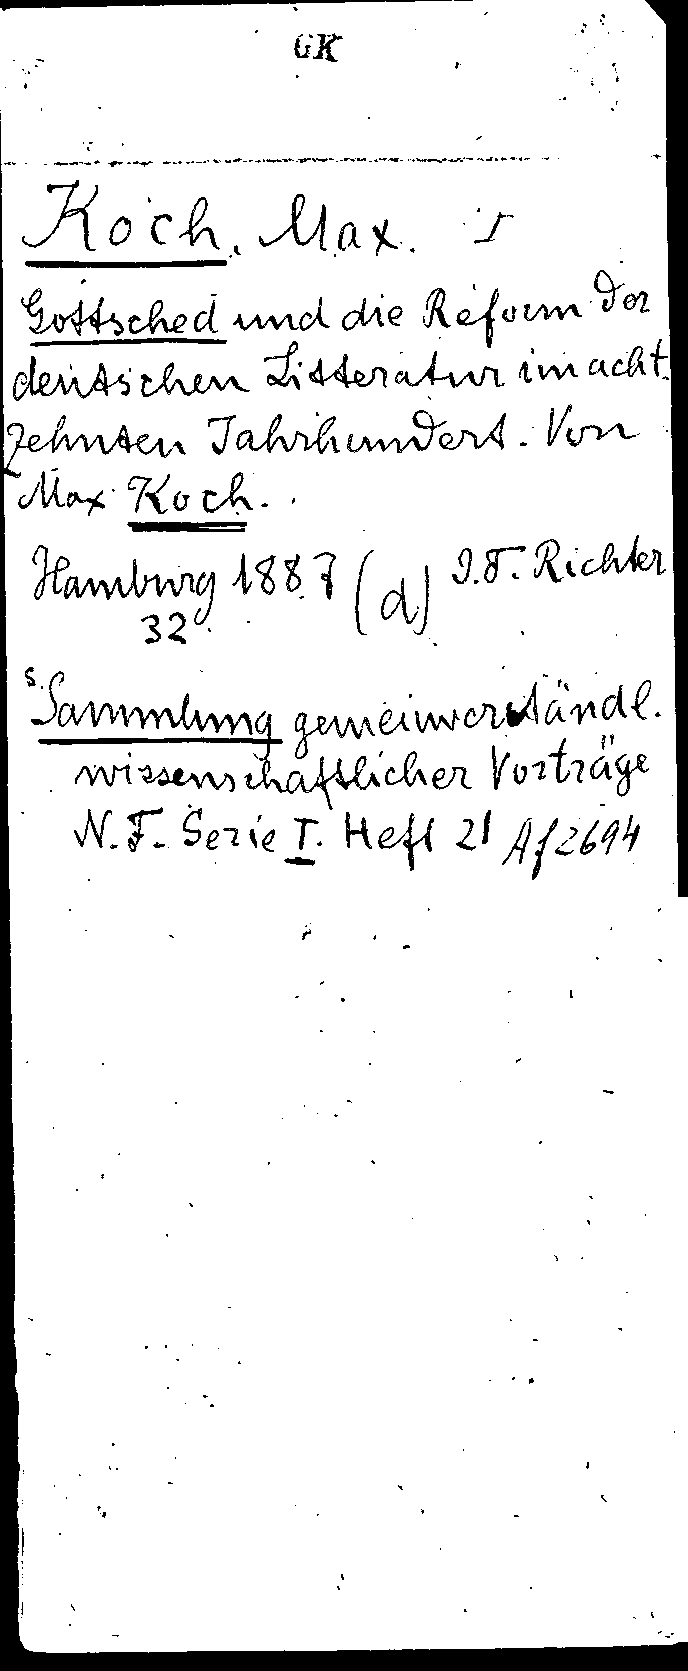 GK
Koch, Max.
Gottsched und die Reform der
deutschen Litteratur im acht-
zehnten Jahrhundert. Von
Max Koch.
Hamburg 1887 (d) I.F. Richter
32
s. Sammlung gemeinverständl.
wissenschaftlicher Vorträge
N.F. Serie I. Heft 21 Af 2694